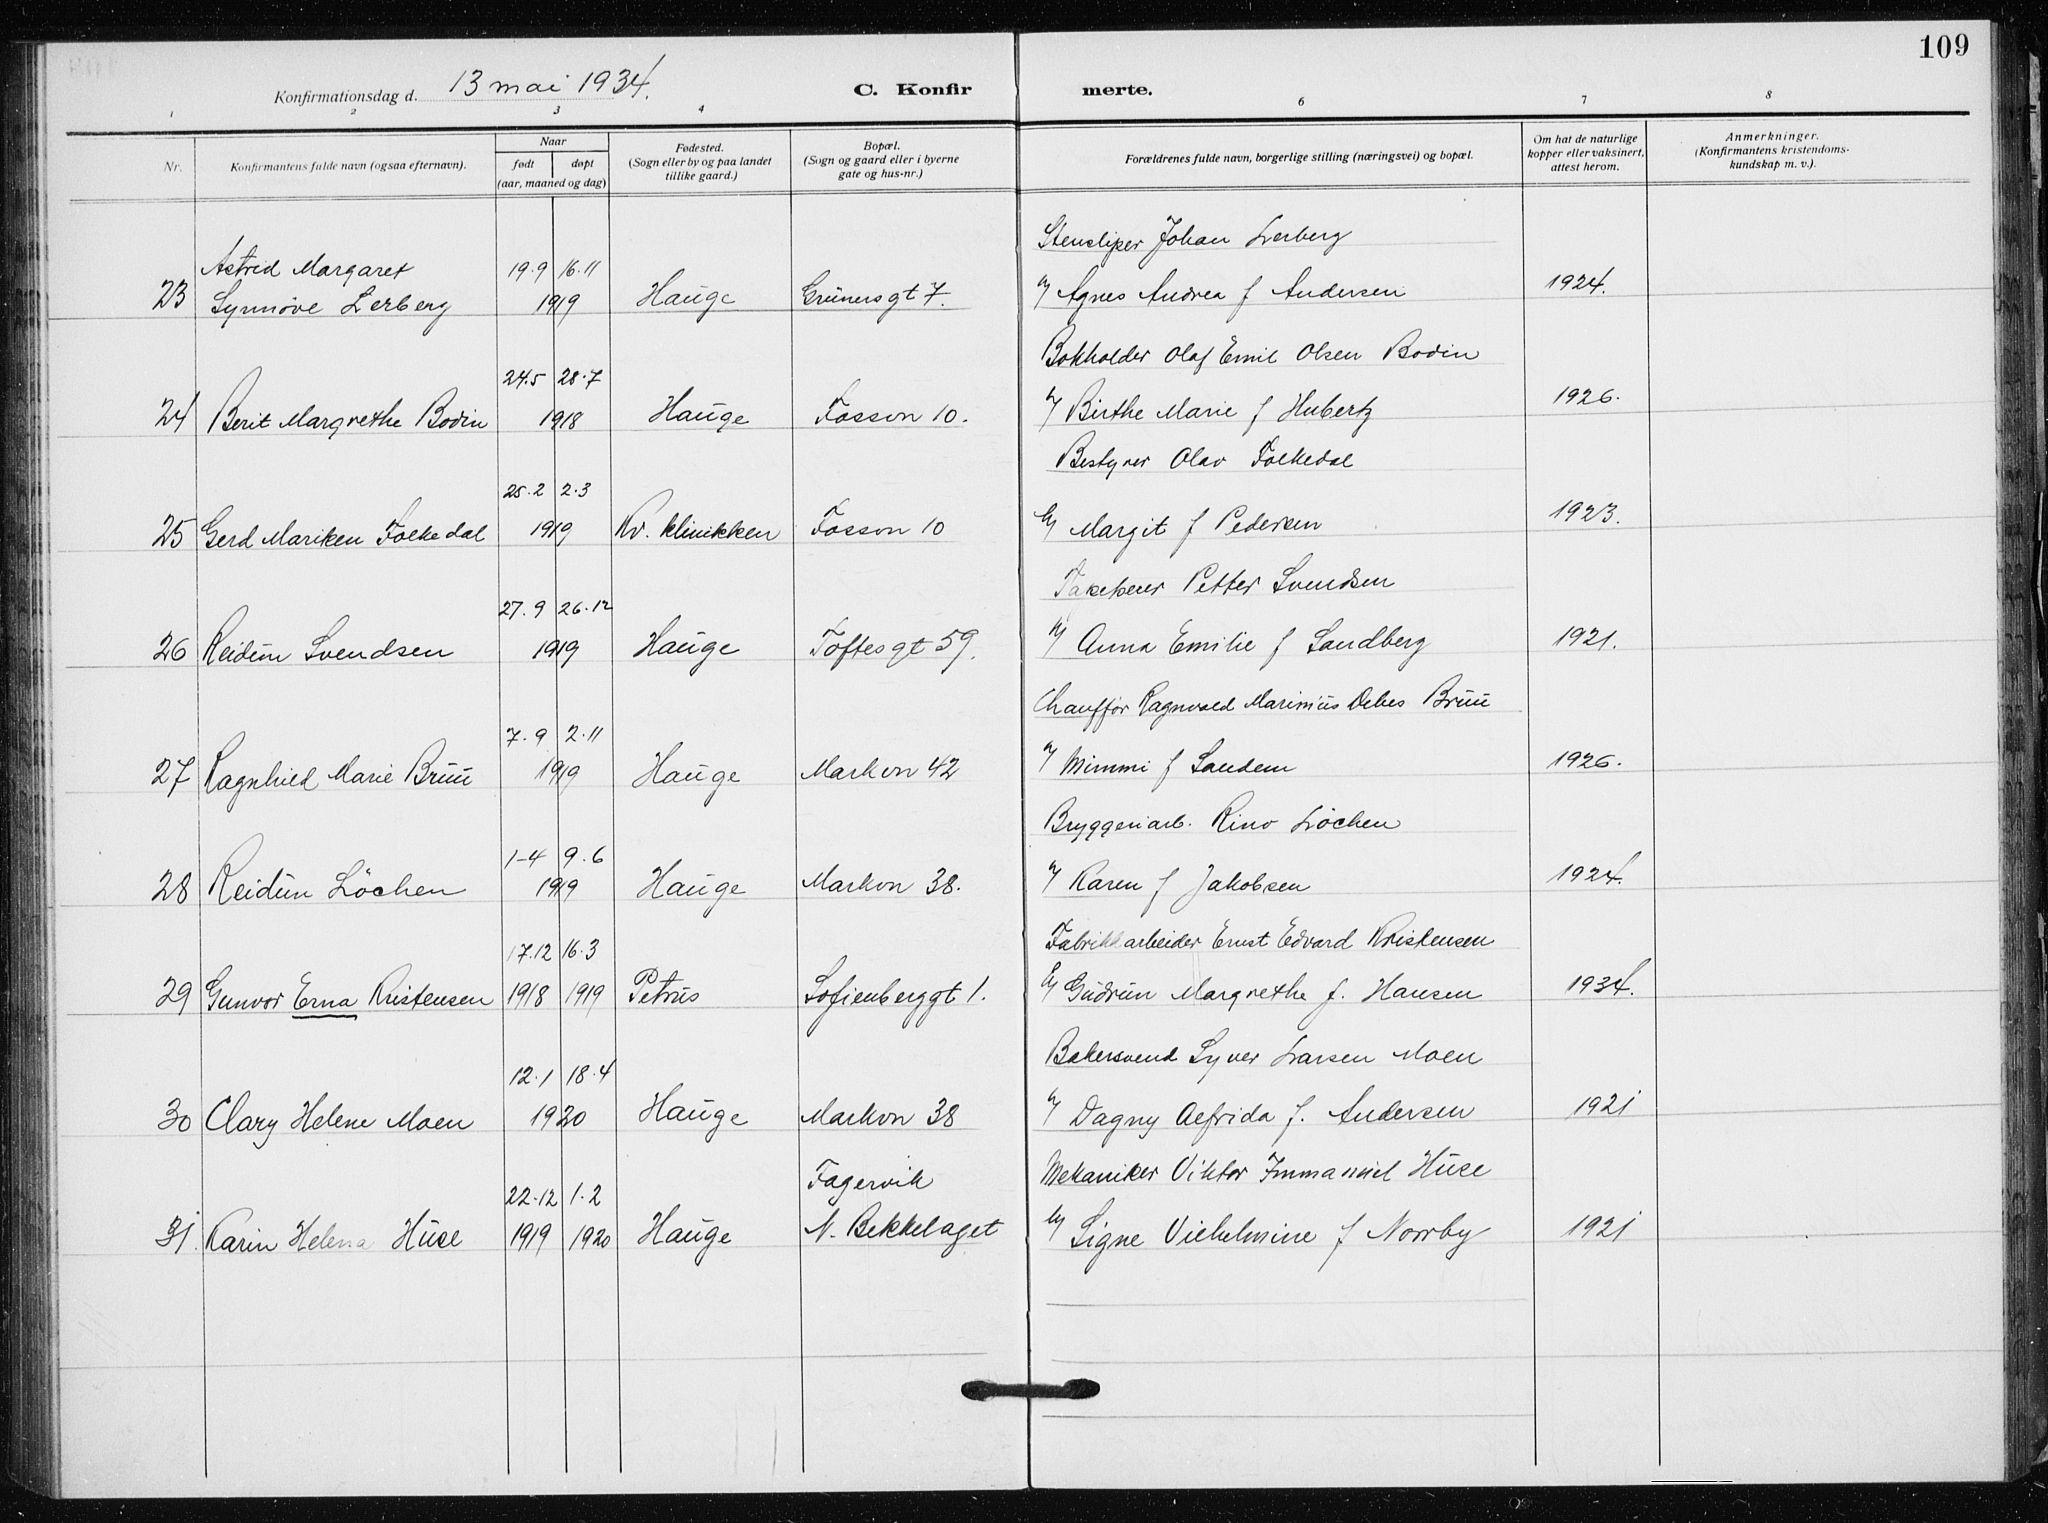 109
Konfirmationsdag d. 13 mai 1934.
C. Konfirmerte.
1 2 3 4 6 7 8
Nr.
Konfirmantens fulde navn (ogsaa efternavn).
Naar
født døpt
(aar, maaned og dag)
Fødested.
(Sogn eller by og paa landet
tillike gaard.)
Bopæl.
(Sogn og gaard eller i byerne
gate og hus-nr.)
Forældrenes fulde navn, borgerlige stilling (næringsvei) og bopæl.
Om hat de naturlige
kopper eller vaksinert,
attest herom.
Anmerkninger.
(Konfirmantens kristendoms-
kundskap m. v.).
Stensliper Johan Lerberg
Astrid Margaret 19.9 16.11
23 Synnöve Lerberg 1919 Hauge Grünersgt 7. og Agnes Andrea f Andersen 1924.
Bokholder Olaf Emil Olsen Bodin
24.5 28.7
24 Berit Margrethe Bodin 1918 Hauge Fossvn 10. og Birthe Marie f Hubertz 1926.
Bestyrer Olav Folkedal
25.2 2.3
25 Gerd Mariken Folkedal 1919 Kv. klinikken Fossvn 10 og Margit f Pedersen 1923.
Petter Svendsen
27.9 26.12
26 Reidun Svendsen 1919 Hauge Toftesgt 59. og Anna Emilie f Sandberg 1921.
Chauffør Ragnvald Marinius Debes Bruu
7.9 2.11
27 Ragnhild Marie Bruu 1919 Hauge Markvn 42 og Mimmi f Sandem 1926.
Bryggeriarb. Rino Löchen
1-4 9.6
28 Reidun Löchen 1919 Hauge Markvn 38. og Karen f Jakobsen 1924.
Fabrikkarbeider Ernst Edvard Kristensen
17.12 16.3
29 Gunvor Erna Kristensen 1918 1919 Petrus Sofienberggt 1. og Gudrun Margrethe f. Hansen 1934.
Bakersvend Syver Larsen Moen
12.1 18.4
30 Clary Helene Moen 1920 Hauge Markvn 38 og Dagny Alfrida f. Andersen 1921
Fagervik Mekaniker Viktor Immanuel Huse
22.12 1.2
31. Karin Helena Huse 1919 1920 Hauge N. Bekkelaget og Signe Vilhelmine f Norrby 1921